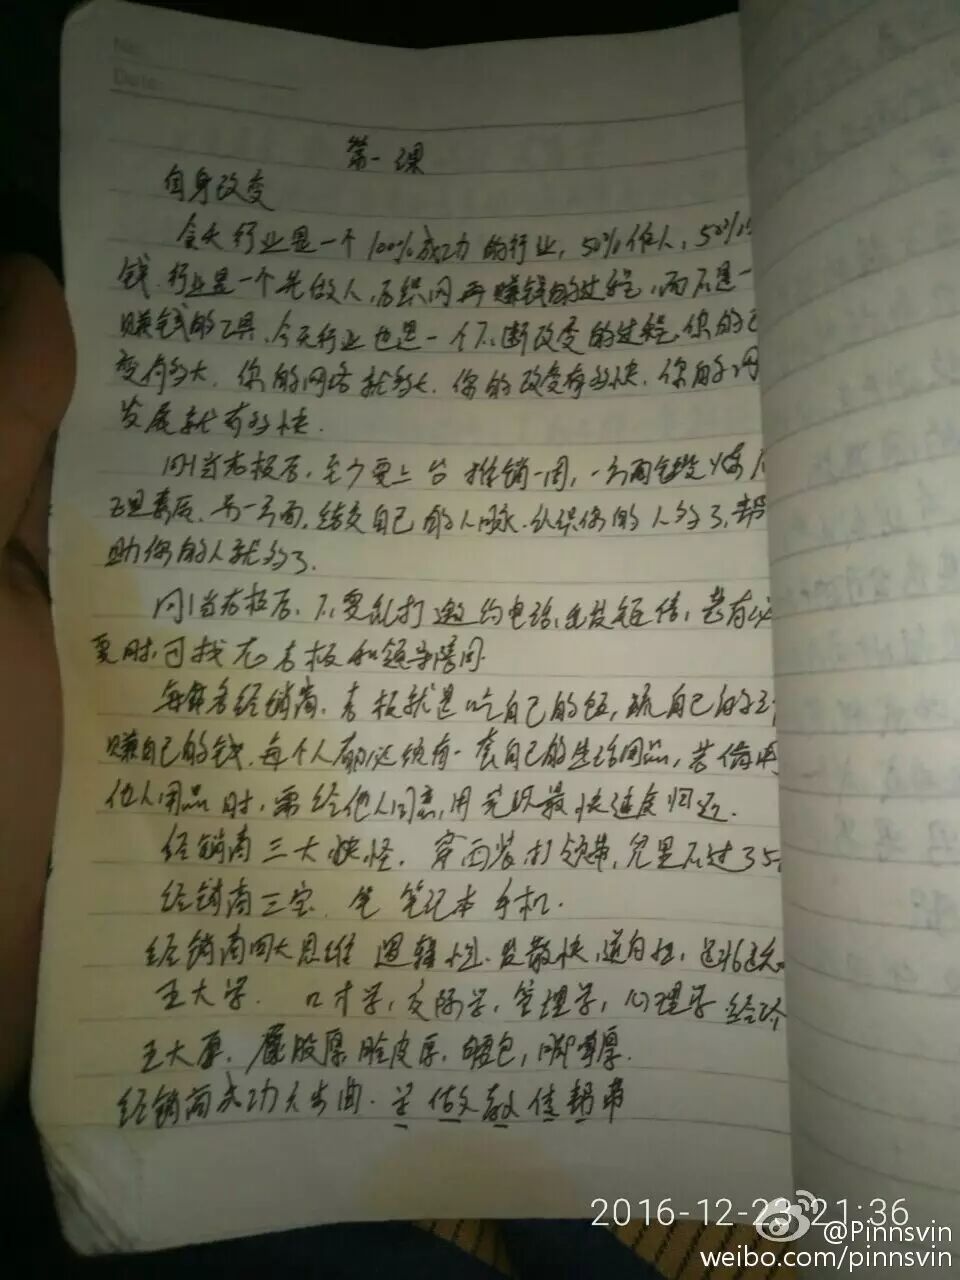 No:
Date:
第一课
自身改变
今天行业是一个100%成功的行业，50%做人，50%
钱.行业是一个先做人，后织网再赚钱的过程，而不是一
赚钱的工具，今天行业也是一个不断改变的过程.你的
变有多大，你的网络就多大，你的改变有多快，你的网
发展就有多快.
当老板后，至少要上台推销一周，一方面
素质，另一方面，结交自己的人脉.认识你的人多了，帮
助你的人就多了.
当老板后，不要乱打邀约电话，乱发短信，若有必
要时，可找老板和领导陪同.
每名经销商，老板就是吃自己的饭，
赚自己的钱，每个人都必须有一套自己的生活用品，若借用
他人用品时，需经他人同意，用完以最快速度归还.
经销商三大，穿西装打领带，不过35
经销商三宝.笔 笔记本 手机.
经销商四大思维 逻辑性.发散
五大学.口才学，交际学，管理学，心理学
五大厚.屁股厚 脸皮厚，
经销商成功六步曲.
2016-12-23 21:36
@Pinnsvin
weibo.com/pinnsvin